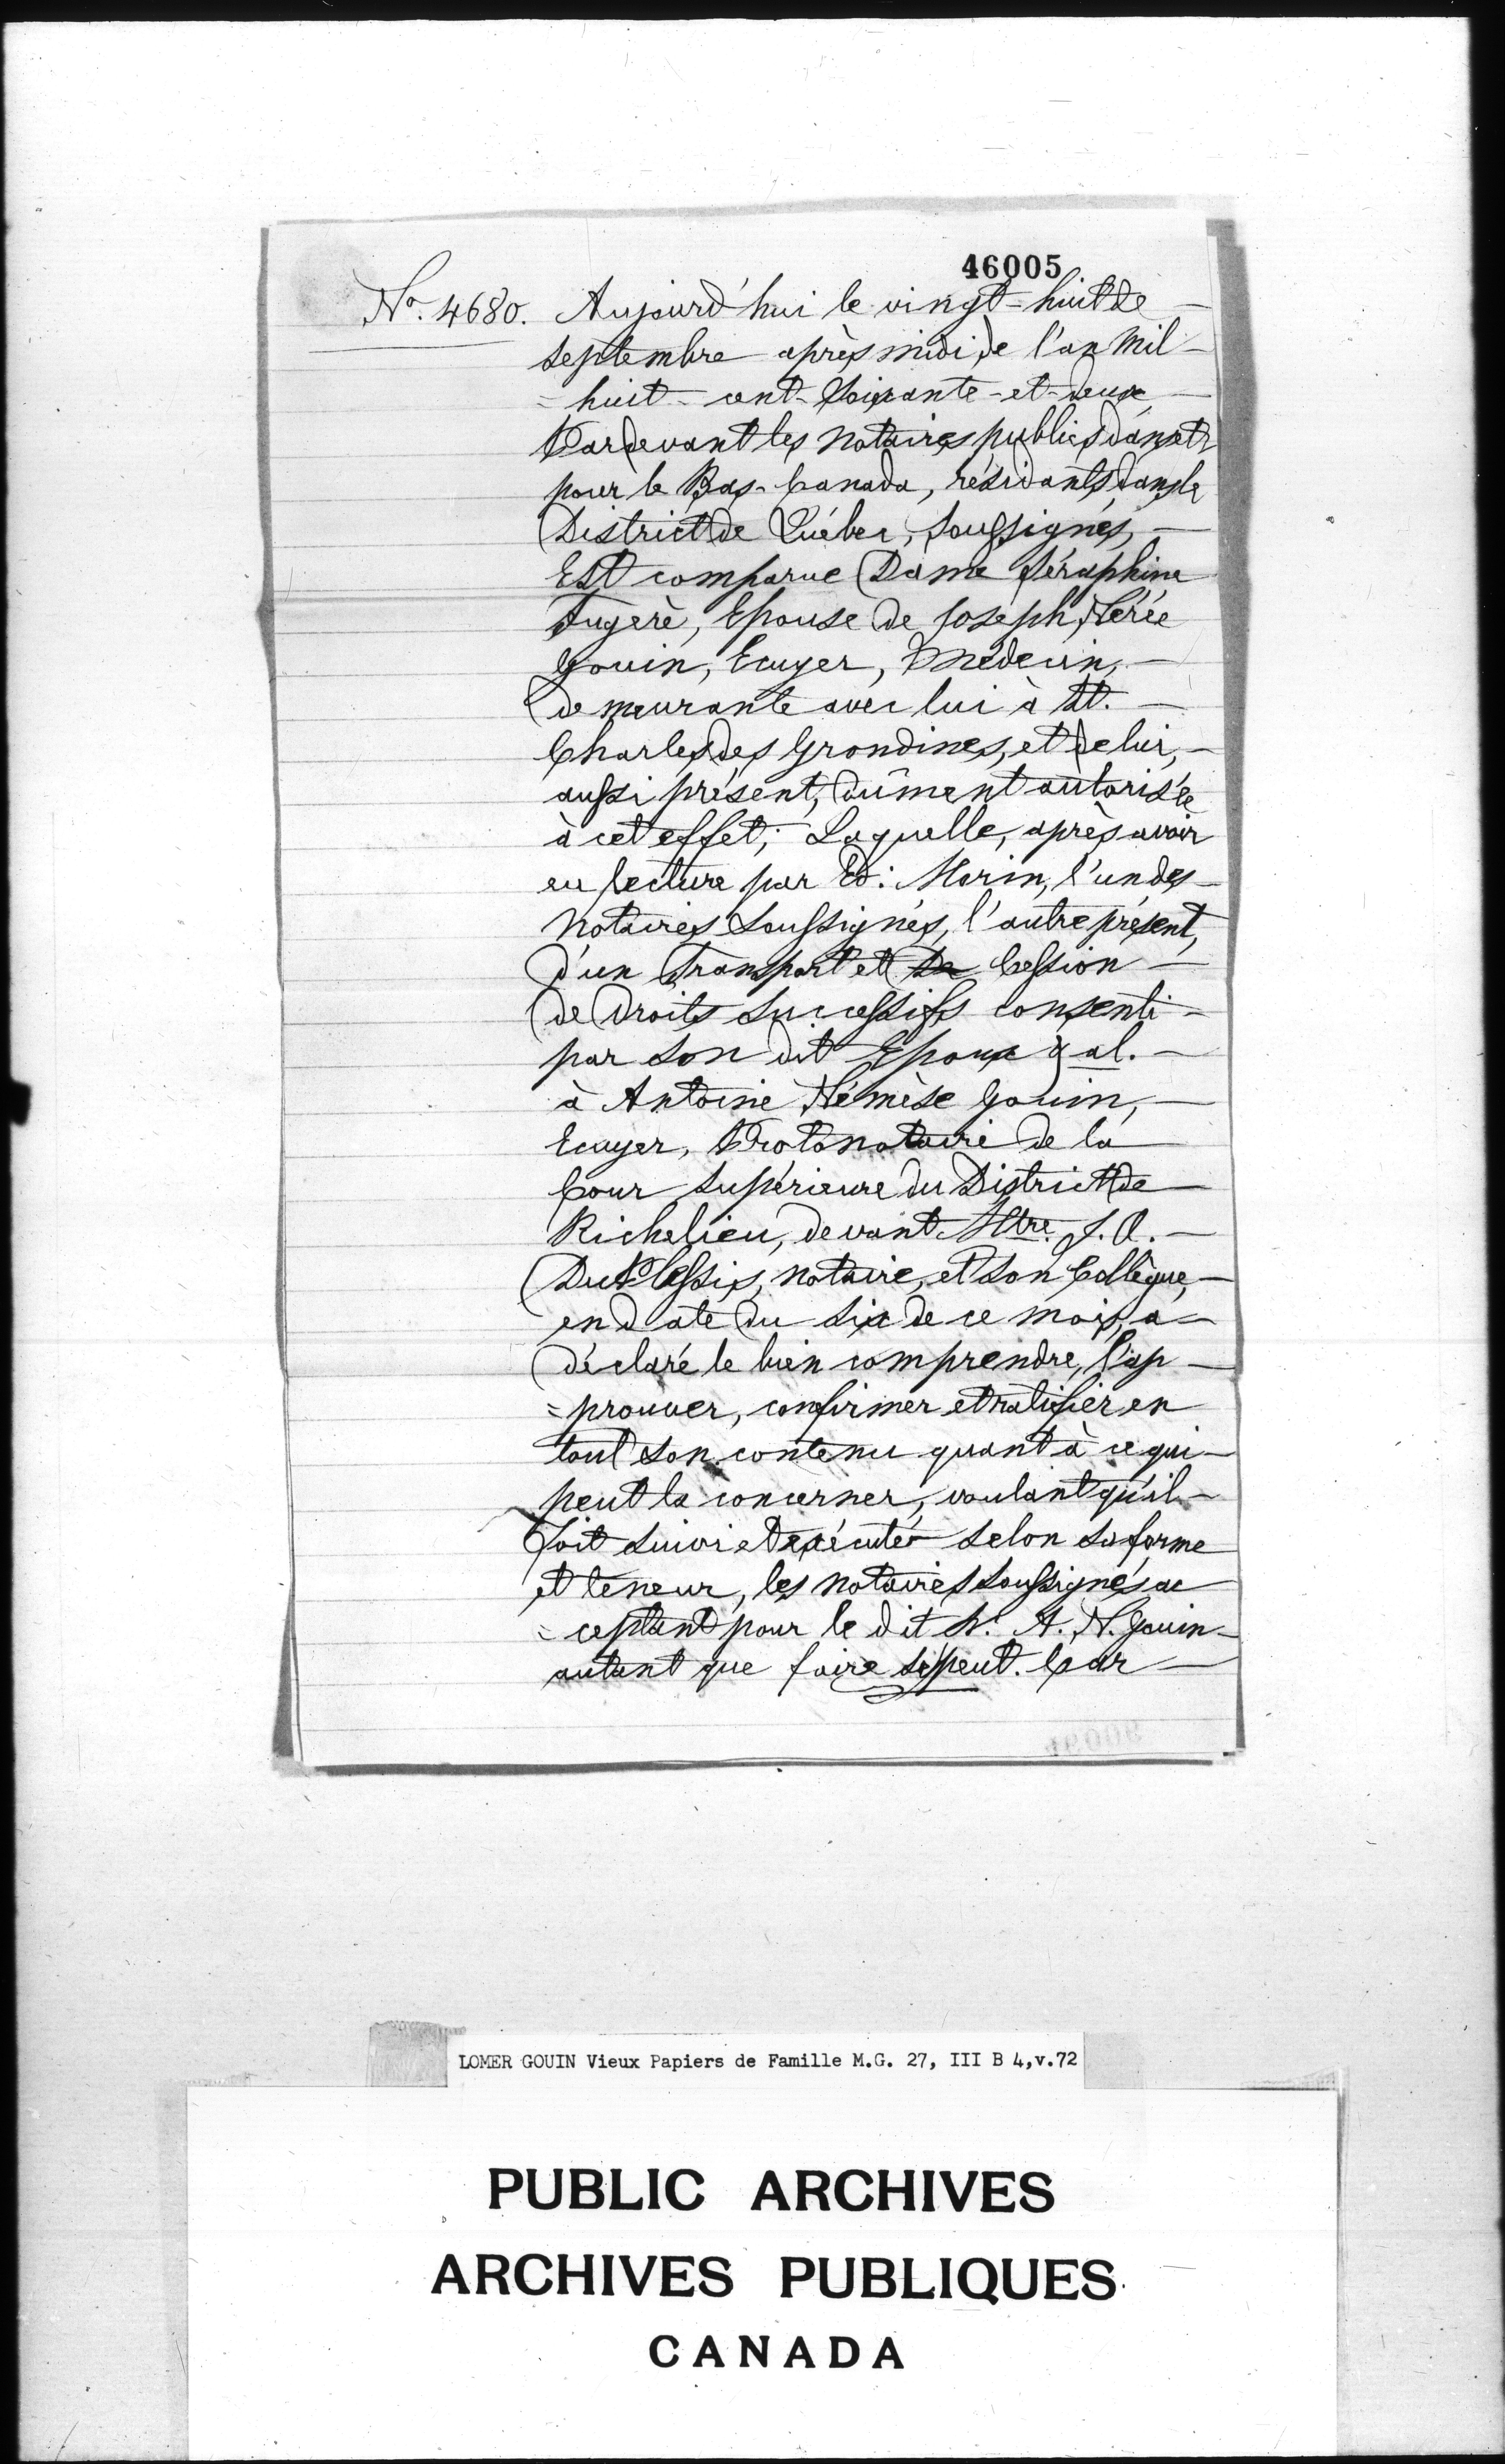 46005
No. 4680. Aujourd'hui le vingt-huit de —
septembre après midi de l'an mil-
= huit-cent-soixante-et-deux —
Pardevant les Notaires publics dans et
pour le Bas-Canada, résidants dans le
District de Québec, soussignés, —
Est comparue Dame Séraphine
Fugère, Epouse de Joseph Nérée
Gouin, Ecuyer, Médecin, —
demeurante avec lui à St. —
Charles des Grondines, et de lui, —
aussi présent, dûment autorisée
à cet effet; Laquelle, après avoir
eu lecture par Ed: Morin, l'un des —
Notaires soussignés, l'autre présent,
d'un Transport et De Cession —
de Droits successifs consenti -
par son dit Epoux & al. —
à Antoine Némèse Gouin, —
Ecuyer, Protonotaire de la —
Cour Supérieure du District de —
Richelieu, devant Mtre. J. A. —
DuPlessis, notaire, et son Collègue, —
en date du six de ce mois, a —
déclaré le bien comprendre, l'ap —
= prouver, confirmer et ratifier en
tout son contenu quant à ce qui —
peut la concerner, voulant qu'il —
soit suivi et exécuté selon sa forme
et teneur, les notaires soussignés ac
= ceptant pour le dit Sr. A. N. Gouin —
autant que faire se peut. Car —
LOMER GOUIN Vieux Papiers de Famille M.G. 27, III B 4,v.72
PUBLIC ARCHIVES
ARCHIVES PUBLIQUES
CANADA